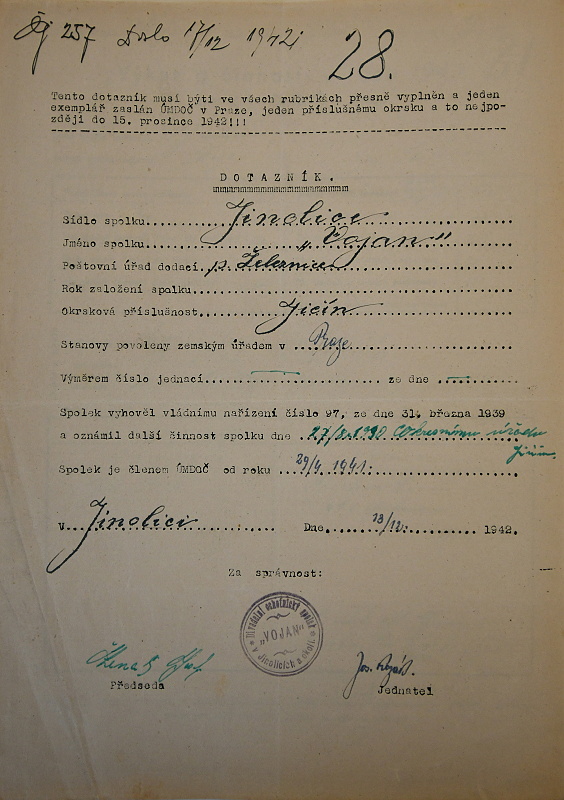 Čj 257 Došlo 17/12 1942
28.
Tento dotazník musí býti ve všech rubrikách přesně vyplněn a jeden
exemplář zaslán ÚMDOČ v Praze, jeden příslušnému okrsku a to nejpo-
zději do 15. prosince 1942!!!
DOTAZNÍK.
Sídlo spolku Jinolice
Jméno spolku "Vojan"
Poštovní úřad dodací p. Železnice
Rok založení spolku
Okrsková příslušnost Jičín
Stanovy povoleny zemským úřadem v Praze
Výměrem číslo jednací ze dne
Spolek vyhověl vládnímu nařízení číslo 97, ze dne 31. března 1939
a oznámil další činnost spolku dne Okresnímu úřadu
Jičín
Spolek je členem ÚMDOČ od roku 29/4 1941.
V Jinolici Dne 13/12. 1942.
Za správnost:
Divadelní ochotnický spolek
"VOJAN"
v Jinolicích a okolí.
Předseda
Jos.
Jednatel